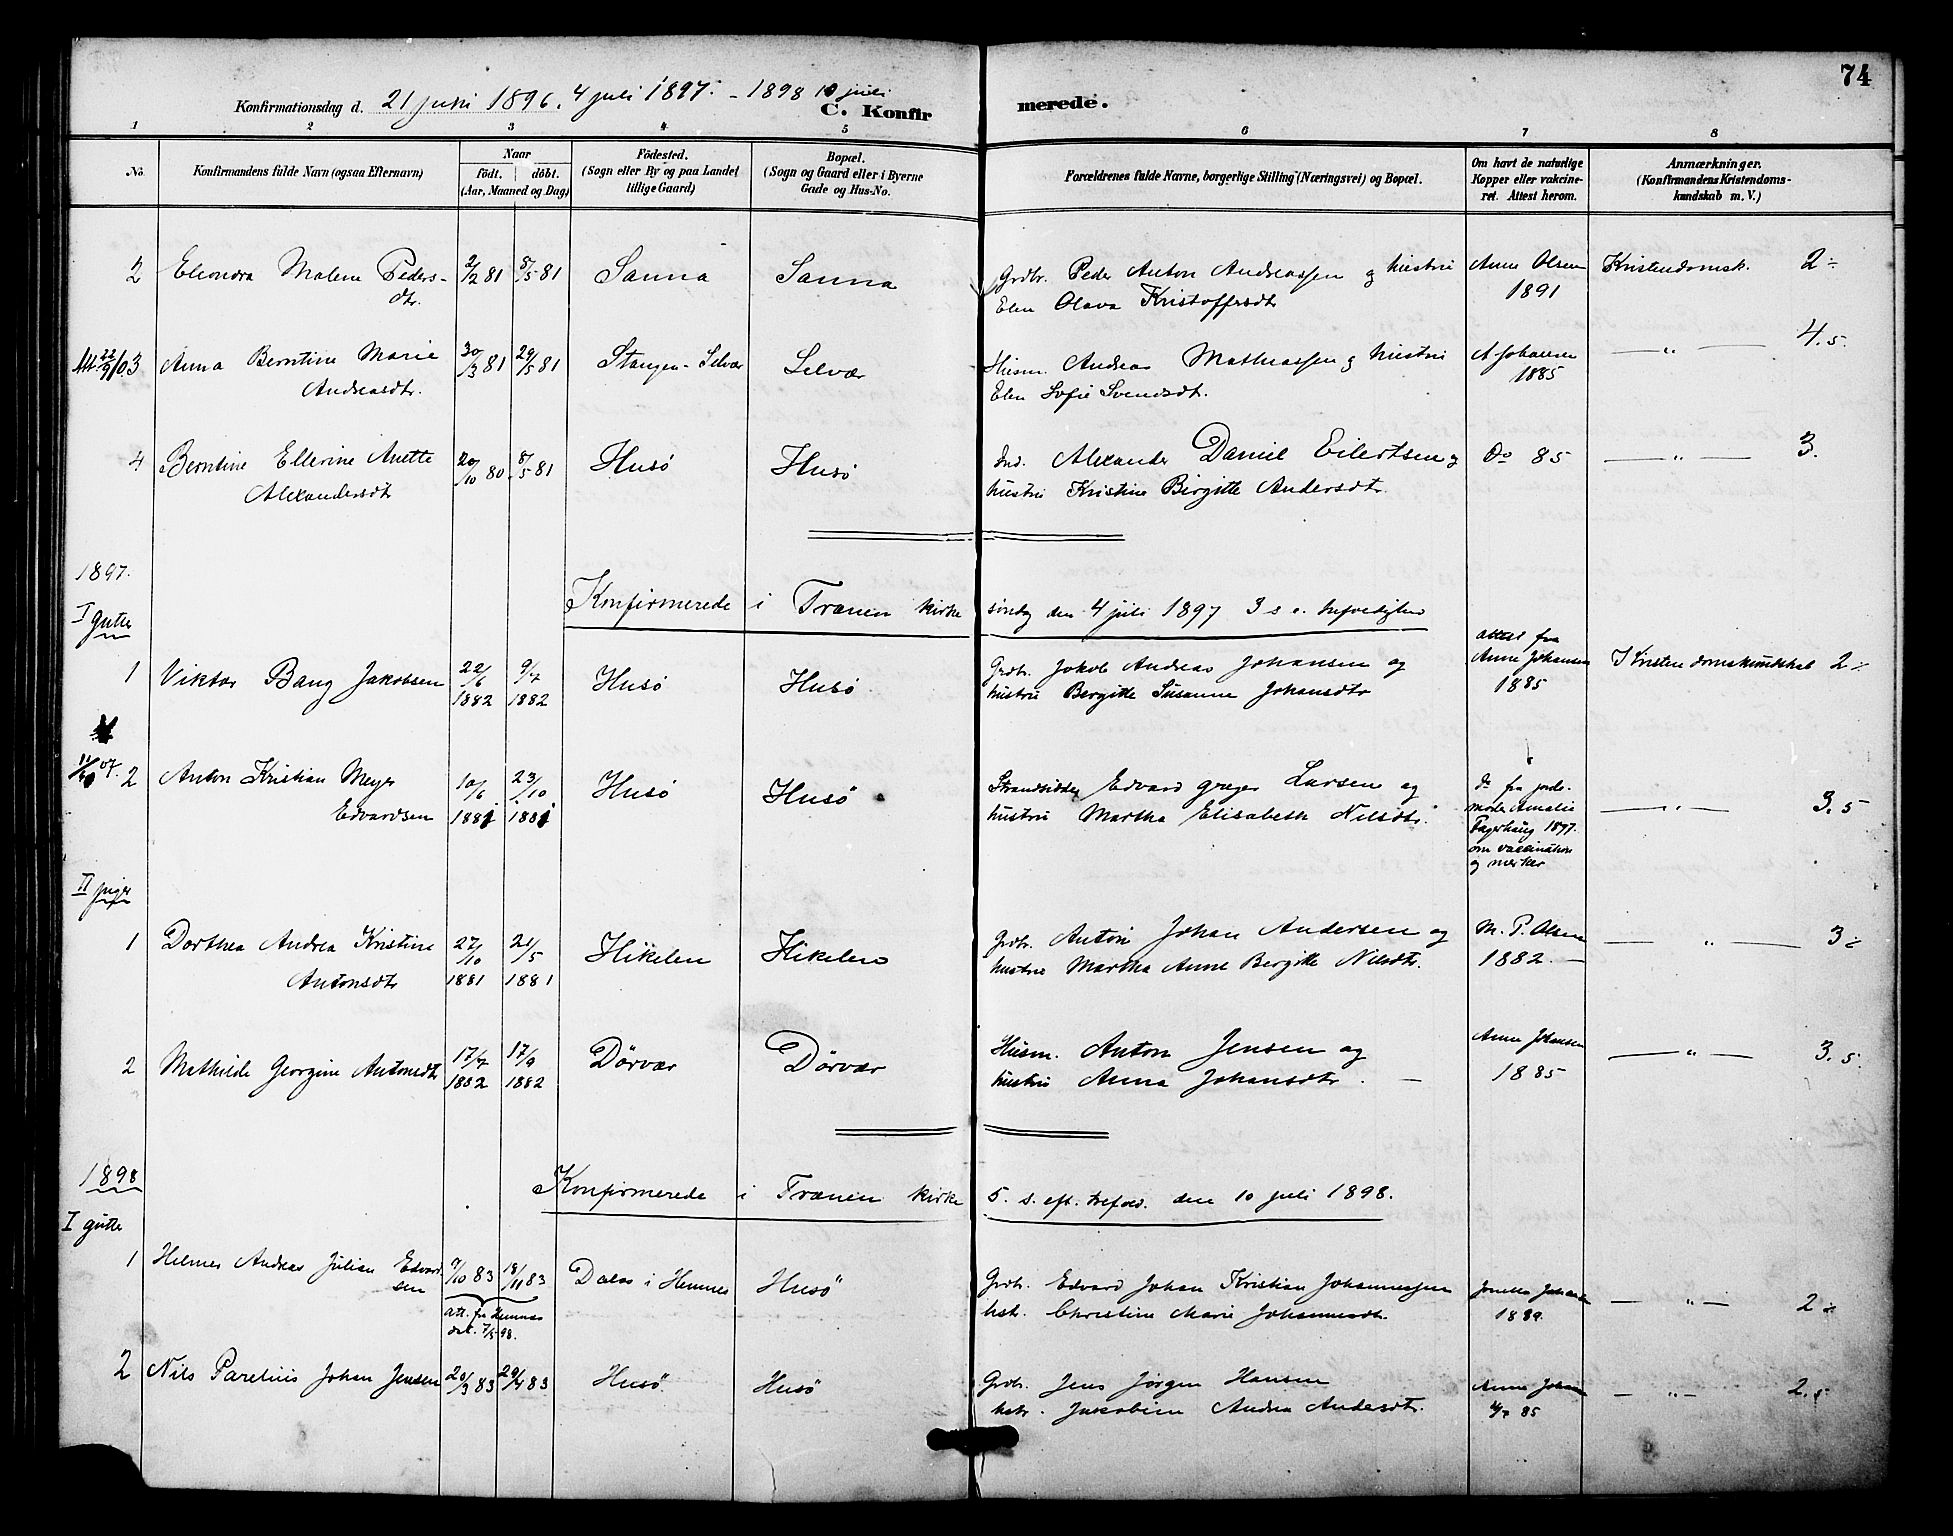 74
Konfirmationsdag d. 21 juni 1896. 4 juli 1897. - 1898 10 juli
C. Konfirmerede.
1 2 3 4 5 6 7 8
No. Konfirmandens fulde Navn (ogsaa Efternavn) Naar födt. döbt. (Aar, Maaned og Dag) Födested. (Sogn eller By og paa Landet tillige Gaard) Bopæl. (Sogn og Gaard eller i Byerne Gade og Hus-No. Forældrenes fulde Navne, borgerlige Stilling (Næringsvei) og Bopæl. Om havt de naturlige Kopper eller vakcineret. Attest herom. Anmærkninger. (Konfirmandens Kristendomskundskab m. V.)
2 Eleonora Malene Peders- 2/2 81 8/5 81 Sanna Sanna Grdbr. Peder Anton Andreassen og hustru Anne Olsen Kristendomsk. 2÷
dtr. Elen Olava Kristoffersdtr 1891
22/9 03 3 Anna Berntine Marie 30/3 81 29/5 81 Stangen-Selvær Selvær Husm. Andreas Mathiassen og hustru A Johansen —"— 4.5
Andreasdtr. Elen Sofie Svendsdtr. 1885
4 Berntine Ellerine Anette 20/10 80 8/5 81 Husö Husö Ind. Alexander Daniel Eilertsen og Do 85 —"— 3.
Alexandersdtr hustru Kristine Birgitte Andersdtr.
1897.
Konfirmerede i Trænen kirke söndag den 4 juli 1897 3 s. e.
I gutter
1 Viktor Bang Jakobsen 22/6 1882 9/7 1882 Husö Husö Grdbr. Jakob Andreas Johansen og attest fra Anne Johansen I Kristendomskundskab 2÷
hustru Bergitte Susanne Johansdtr 1885
11/ 07. 2 Anton Kristian Meyer 10/6 1881 23/10 1881 Husö Husö Strandsidder Edvard Greger Larsen og do fra jorde- —"— 3.5
Edvardsen hustru Martha Elisabeth Nilsdtr. moder Amalie
Fagerhaug 1897.
om vaccination
og mærker
II piger
1 Dorthea Andrea Kristine 27/10 1881 21/5 1881 Hikelen Hikelen Grdbr. Anton Johan Andersen og M. P. Olsen —"— 3÷
Antonsdtr hustru Martha Anne Bergitte Nilsdtr. 1882.—
2 Mathilde Georgine Antonsdtr 17/7 1882 17/9 1882 Dörvær Dörvær Husm. Anton Jensen og Anne Johansen —"— 3.5
hustru Anna Johansdtr. — 1885
1898
Konfirmerede i Trænen kirke 5. s. eft. trefold. den 10 juli 1898.
I gutte
1 Helmer Andreas Julian Edvard- /10 83 18/11 83 Dalen i Hemnes Husö Grdbr. Edvard Johan Kristian Johannessen Johansen —"— 2÷
sen att. fra Hemnes dat. 7/5 98. hst. Christine Marie Johannesdtr. 1889.
2 Nils Parelius Johan Jensen 20/3 83 29/4 83 Husö Husö Grdbr. Jens Jørgen Hansen Anne Johansen —"— 2.5
hstr. Jakobine Andrea Andersdtr. 4/7 85